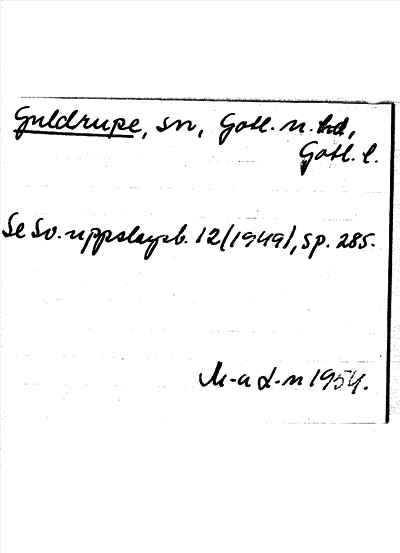 Guldrupe, sn, Gotl. n. hd,
Gotl. l.
Se Sv. uppslagsb. 12 (1949), sp. 285.
M-a d-n 1954.